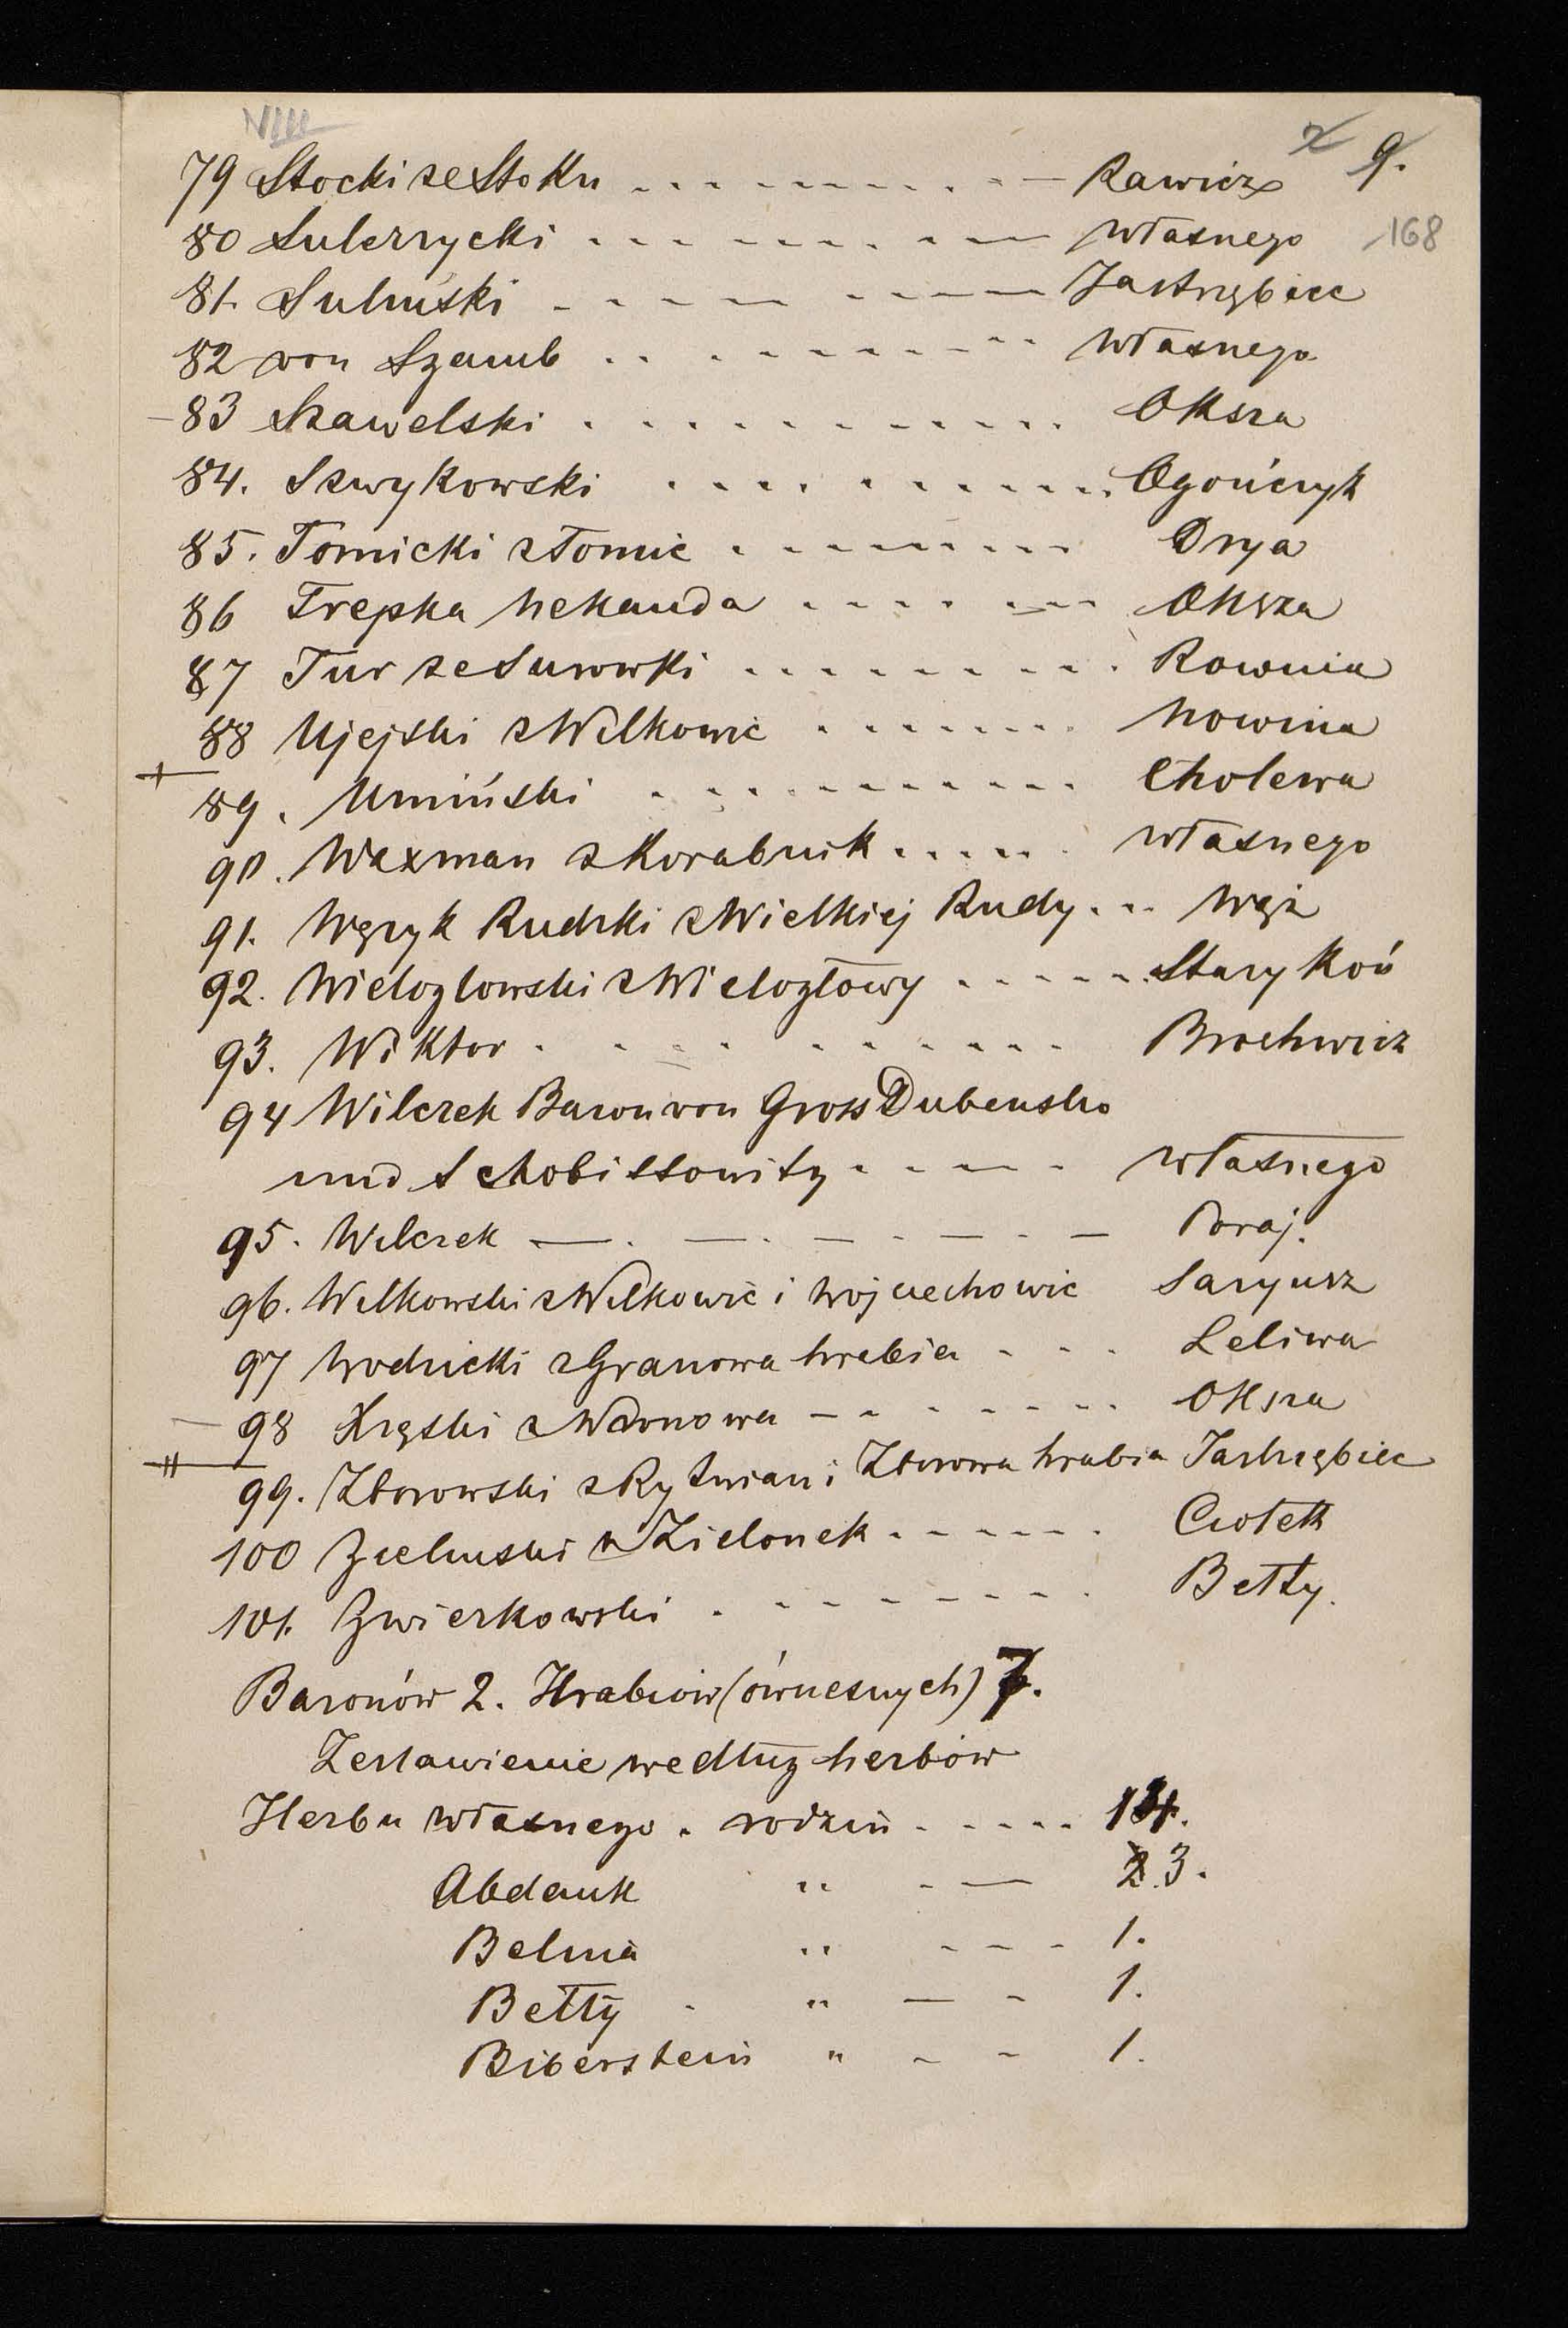 VIII
9.
168
79 Stocki ze Stoku - - - - - - - - - Rawicz
80 Sulerzycki - - - - - - - - - własnego
81. Suliński - - - - - - - - - Jastrzębiec
82 von Szemb - - - - - - - - - własnego
83 Szawelski . . . . . . . . . . . Oksza
84. Szwykowski . . . . . . . . . . . Ogończyk
85. Tomicki z Tomic - - - - - - - - - Drya
86 Trepka Nekanda - - - - - - - Oksza
87 Tur ze Surowki - - - - - - - - . Rownia
88 Ujejski z Wilkowic - - - - - - - Nowina
89. Umiński . - - - - - - - - - Cholewa
90. Waxman z Korabnik - - - - - . własnego
91. Węzyk Rudzki z Wielkiej Rudy - - - Wąż
92. Wielogłowski z Wielogłowy - - - - - Stary Koń
93. Wiktor - - - - - - - - - - Brochwicz
94 Wilczek Baron von Gross Dubensko
und Schobissowitz - - - - - własnego
95. Wilczek — . — . — - — - — Poraj.
96. Wilkowski z Wilkowic i Wojciechowic Saryusz
97 Wodzicki z Granowa hrabia - - - Leliwa
98 Xręski z Wdonowa — - - - - - - Oksza
99. Zborowski z Rytwian i Zborowa hrabia Jastrzębiec
100 Zieliński z Zielonek - - - - - - Ciołek
101. Zwierkowski . - - - - - - - . Bełty.
Baronów 2. Hrabiów (ówczesnych) 7.
Zestawienie według herbów
Herbu własnego . rodzin - - - - - 14.
Abdank " - — 2 3.
Belina " - - - - 1.
Bełty - " — - 1.
Biberstein " - - 1.